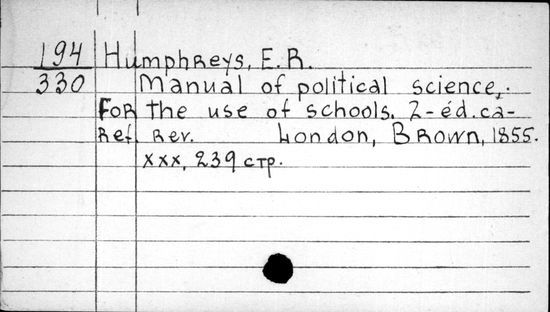 194 Humphreys, E. R.
330 Manual of political science,
for the use of schools. 2-éd. ca-
ref. rev. London, Brown, 1855.
xxx, 239 стр.